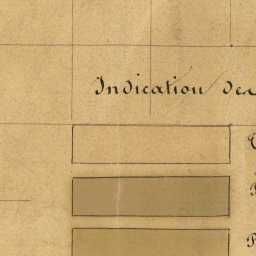 Indication des